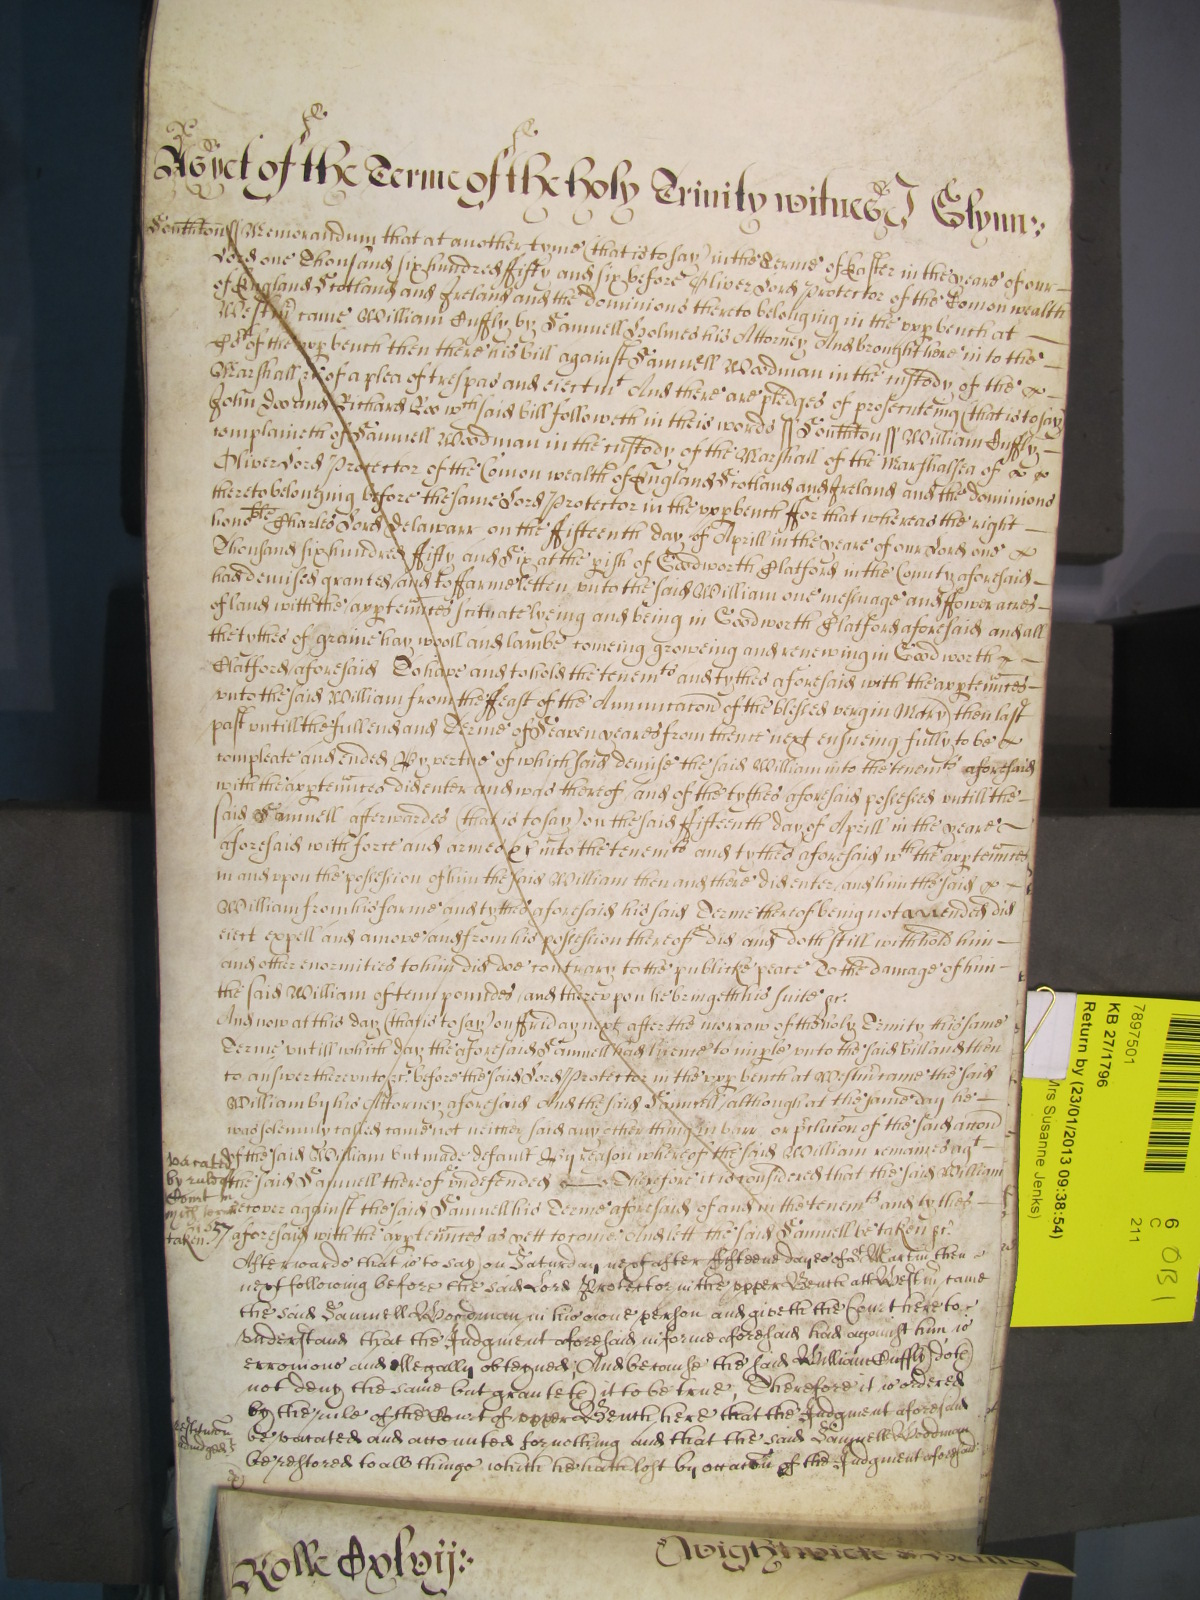 As yet of the Terme of the holy Trinity witnes J Glynn:
Southton ss Memorandum that at another tyme (that is to say) in the Terme of Easter in the yeare of our
Lord one Thousand six hundred fifty and six before Oliver Lord Protector of the Comon wealth
of England Scotland and Ireland and the dominions thereto belonging in the upp bench at
Westm came William Cuffly by Samuell Holmes his Attorney And brought here in to the
of the upp bench then there his bill against Samuell Woodman in the custody of the
Marshall &c of a plea of trespas and eiectmt And there are pledges of prosecuteing (that is to say)
John Doo and Richard Roo wch said bill followeth in theis words ss Southton ss William Cuffly
complaineth of Samuell Woodman in the custody of the Marshall of the Marshallsea of
Oliver Lord Protector of the Comon wealth of England Scotland and Ireland and the dominions
thereto belonging before the same Lord Protector in the upp bench ffor that whereas the right
honoble Charles Lord Delawarr on the fifteenth day of Aprill in the yeare of our Lord one
Thousand six hundred fifty and Six at the pish of Goodworth Clatford in the County aforesaid
had demised granted and to ffarme letten unto the said William one mesuage and ffower acres
of land with the apptennces scituate lyeing and being in Goodworth Clatford aforesaid and all
the tythes of graine hay wooll and lambe comeing groweing and renewing in Goodworth
Clatford aforesaid To have and to hold the tenemts and tythes aforesaid with the apptennces
unto the said William from the ffeast of the Annuntacon of the blessed vergin Mary then last
past untill the full end and Terme of Seaven yeares from thence next ensueing fully to be
compleate and ended By vertue of which said demise the said William into the tenemts aforesaid
with the apptennces did enter and was thereof and of the tythes aforesaid possessed untill the
said Samuell afterwardes (that is to say) on the said fifteenth day of Aprill in the yeare
aforesaid with force and armes &c into the tenemts and tythes aforesaid wth the apptennces
in and upon the possession of him the said William then and there did enter and him the said
William from his farme and tythes aforesaid his said Terme thereof being not ended did
eiect expell and amove and from his possession thereof did and doth still withhold him
and other enormities to him did doe contrary to the publicke peace To the damage of him
the said William of tenn poundes and thereupon he bringeth his suite &c.
And now at this day (that is to say) on ffriday next after the morrow of the holy Trinity this same
Terme untill which day the aforesaid Samuell had licence to imple unto the said bill and then
to answer thereunto &c before the said Lord Protector in the upp bench at Westm came the said
William by his Attorney aforesaid And the said Samuell although at the same day he
was solemnly called came not neither said any other thing in barr or pclusion of the said accon
of the said William but made default By reason whereof the said William remaines agt
the said Samuell thereof undefended Therefore it is considered that the said William
recover against the said Samuell his Terme aforesaid of and in the tenemts and tythes
aforesaid with the apptennces as yett to come And lett the said Samuell be taken &c.
vacated
by rule of
Court
taken
Afterwards that is to say on Saturday next after fifteene dayes of St Martin then
next following before the said Lord Protector in the upper Bench att Westm came
the said Samuell Woodman in his owne person and giveth the Court here to
understand that the Judgment aforesaid in forme aforesaid had against him is
erronious and illegally obteyned, And because the said William Cuffly doth
not deny the same but granteth it to be true, Therefore it is ordered
by the rule of the Court of upper Bench here that the Judgment aforesaid
be vacated and accounted for nothing and that the said Samuell Woodman
be restored to all things which he hath lost by occacon of the Judgment aforesaid
Rolle
7897501
KB 27/1796
Return by (23/01/2013 09:38:54)
Mrs Susanne Jenks)
6
C
211